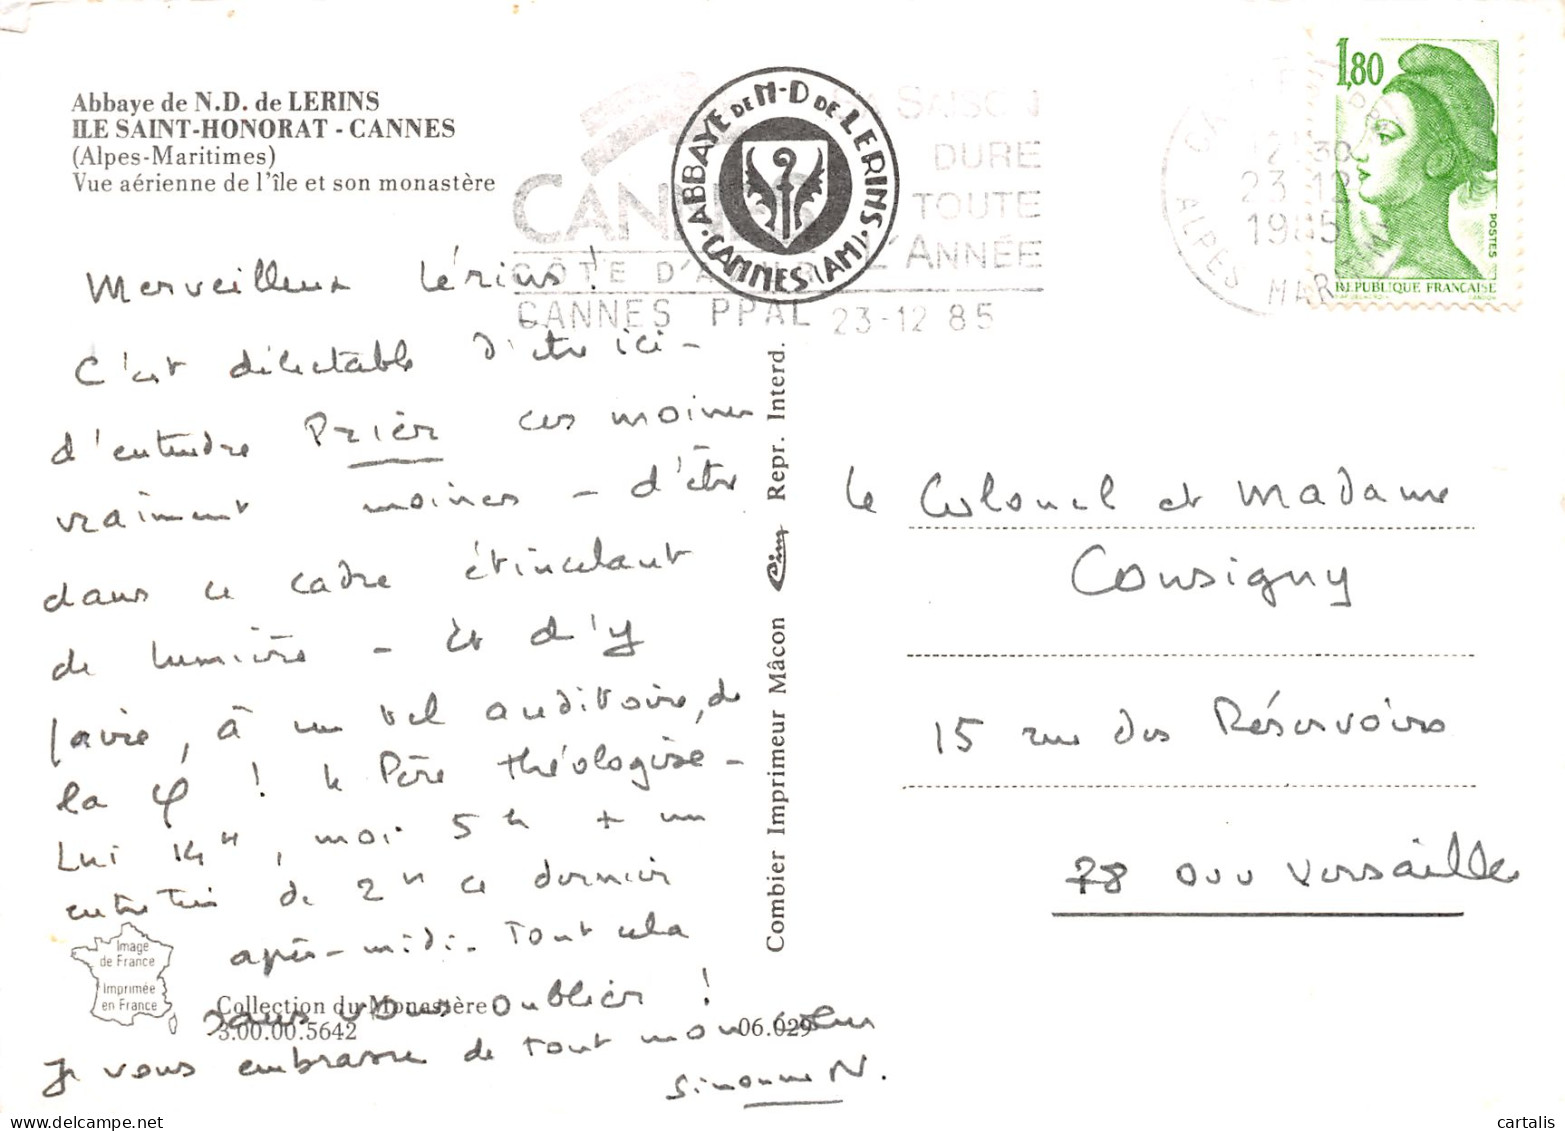 Abbaye de N.D. de LERINS
ILE SAINT-HONORAT - CANNES
(Alpes-Maritimes)
Vue aérienne de l'île et son monastère
Merveilleux Lérins !
C'est délectable d'être ici -
d'entendre Prier ces moines
vraiment moines - d'être
dans ce cadre étincelant
de lumière - Et d'y
faire, à un tel auditoire, de
la φ ! le Père théologise -
Lui 14 H, moi 5 h + un
entretien de 2 h ce dernier
après-midi. Tout cela
sans vous oublier !
Je vous embrasse de tout mon cœur
Simonne N.
Image
de France
Imprimée
en France
Collection du Monastère
3.00.00.5642
06.029
Combier Imprimeur Mâcon Cim Repr. Interd.
ABBAYE DE N-D DE LERINS
CANNES (AM)
LA SAISON
DURE
TOUTE
L'ANNÉE
CANNES
CÔTE D'AZUR
CANNES PPAL 23-12 85
12 H 30
23-12
1985
ALPES MARITIMES
1,80
POSTES
REPUBLIQUE FRANÇAISE
Le Colonel et Madame
Consigny
15 rue des Réservoirs
78 000 Versailles
cartalis